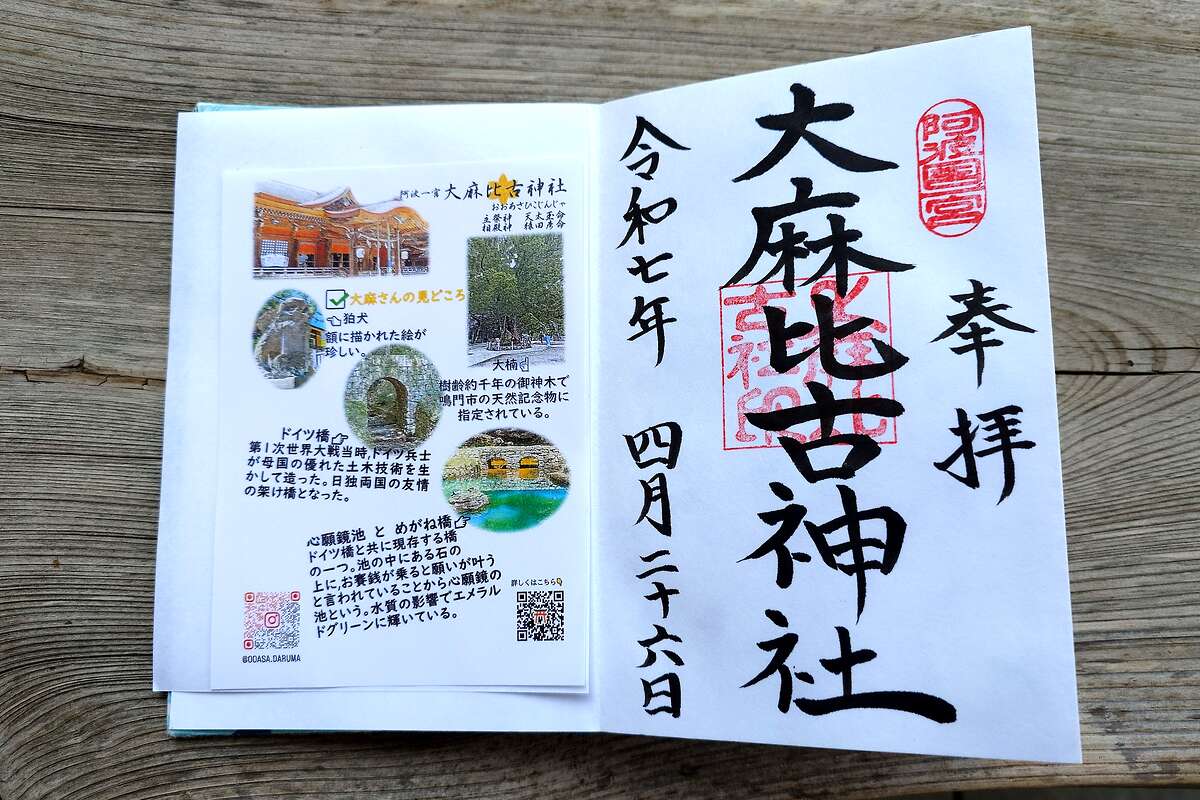 阿波一宮 大麻比古神社
おおあさひこじんじゃ
主祭神 天太玉命
相殿神 猿田彦命
大麻さんの見どころ
狛犬
顔に描かれた絵が
珍しい。
大楠
樹齢約千年の御神木で
鳴門市の天然記念物に
指定されている。
ドイツ橋
第1次世界大戦当時,ドイツ兵士
が母国の優れた土木技術を生
かして造った。日独両国の友情
の架け橋となった。
心願鏡池 と めがね橋
ドイツ橋と共に現存する橋
の一つ。池の中にある石の
上に,お賽銭が乗ると願いが叶う
と言われていることから心願鏡の
池という。水質の影響でエメラル
ドグリーンに輝いている。
詳しくはこちら
@ODASA.DARUMA
阿波國一宮
奉拝
大麻比古神社
令和七年 四月二十六日